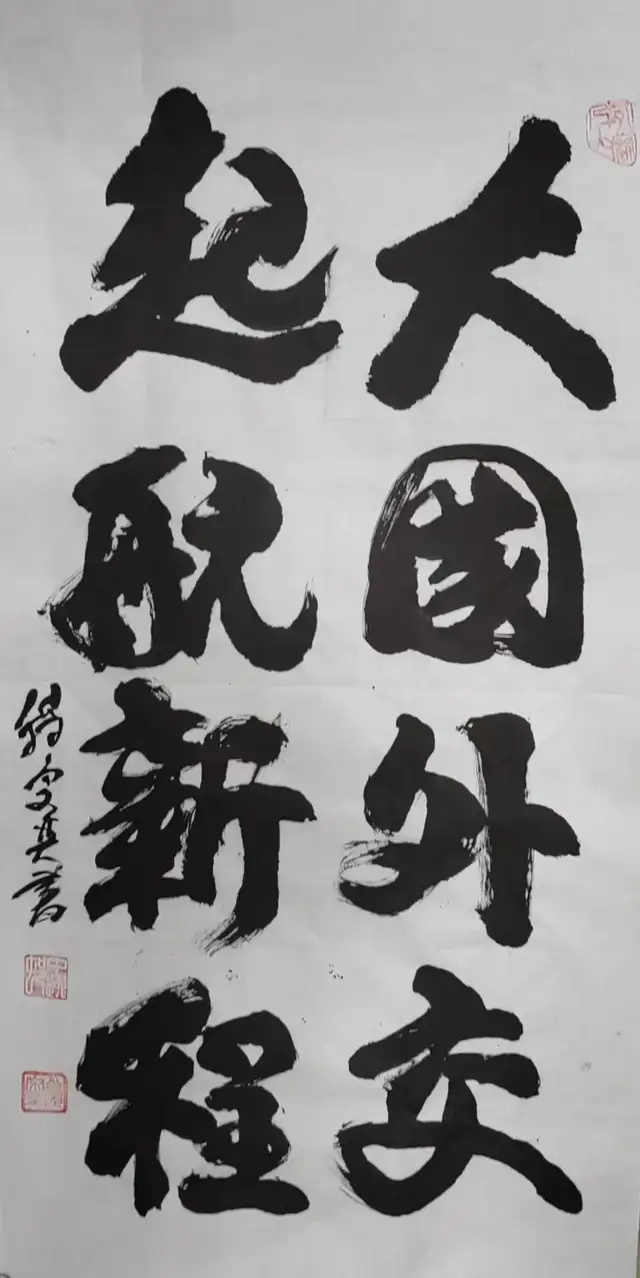 大國外交
起航新程